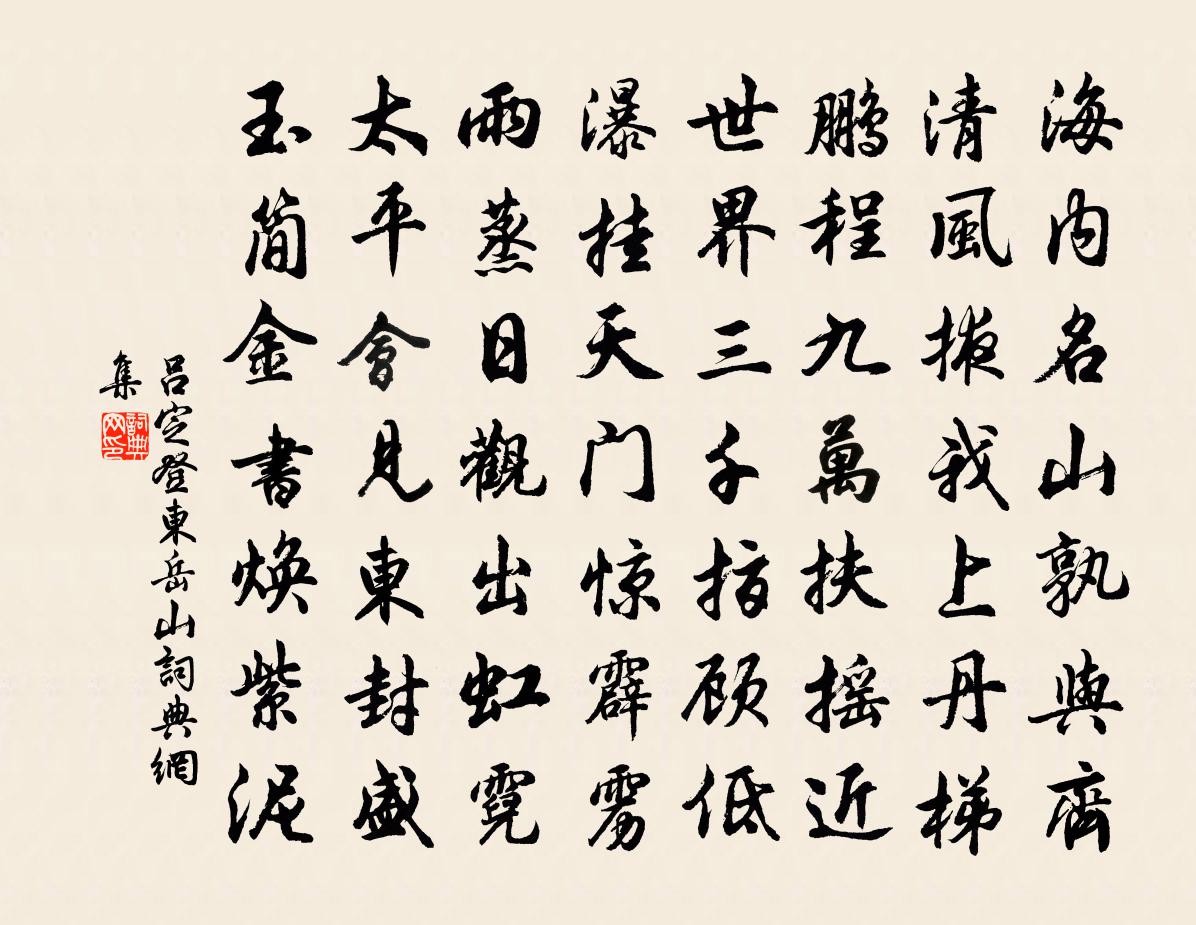 海内名山孰與齊
清風掖我上丹梯
鹏程九萬扶摇近
世界三千指顾低
瀑挂天门惊霹雳
雨蒸日觀出虹霓
太平會見東封盛
玉简金書焕紫泥
吕定登東岳山詞典網
集
詞典网印